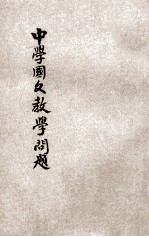 中學國文教學問題